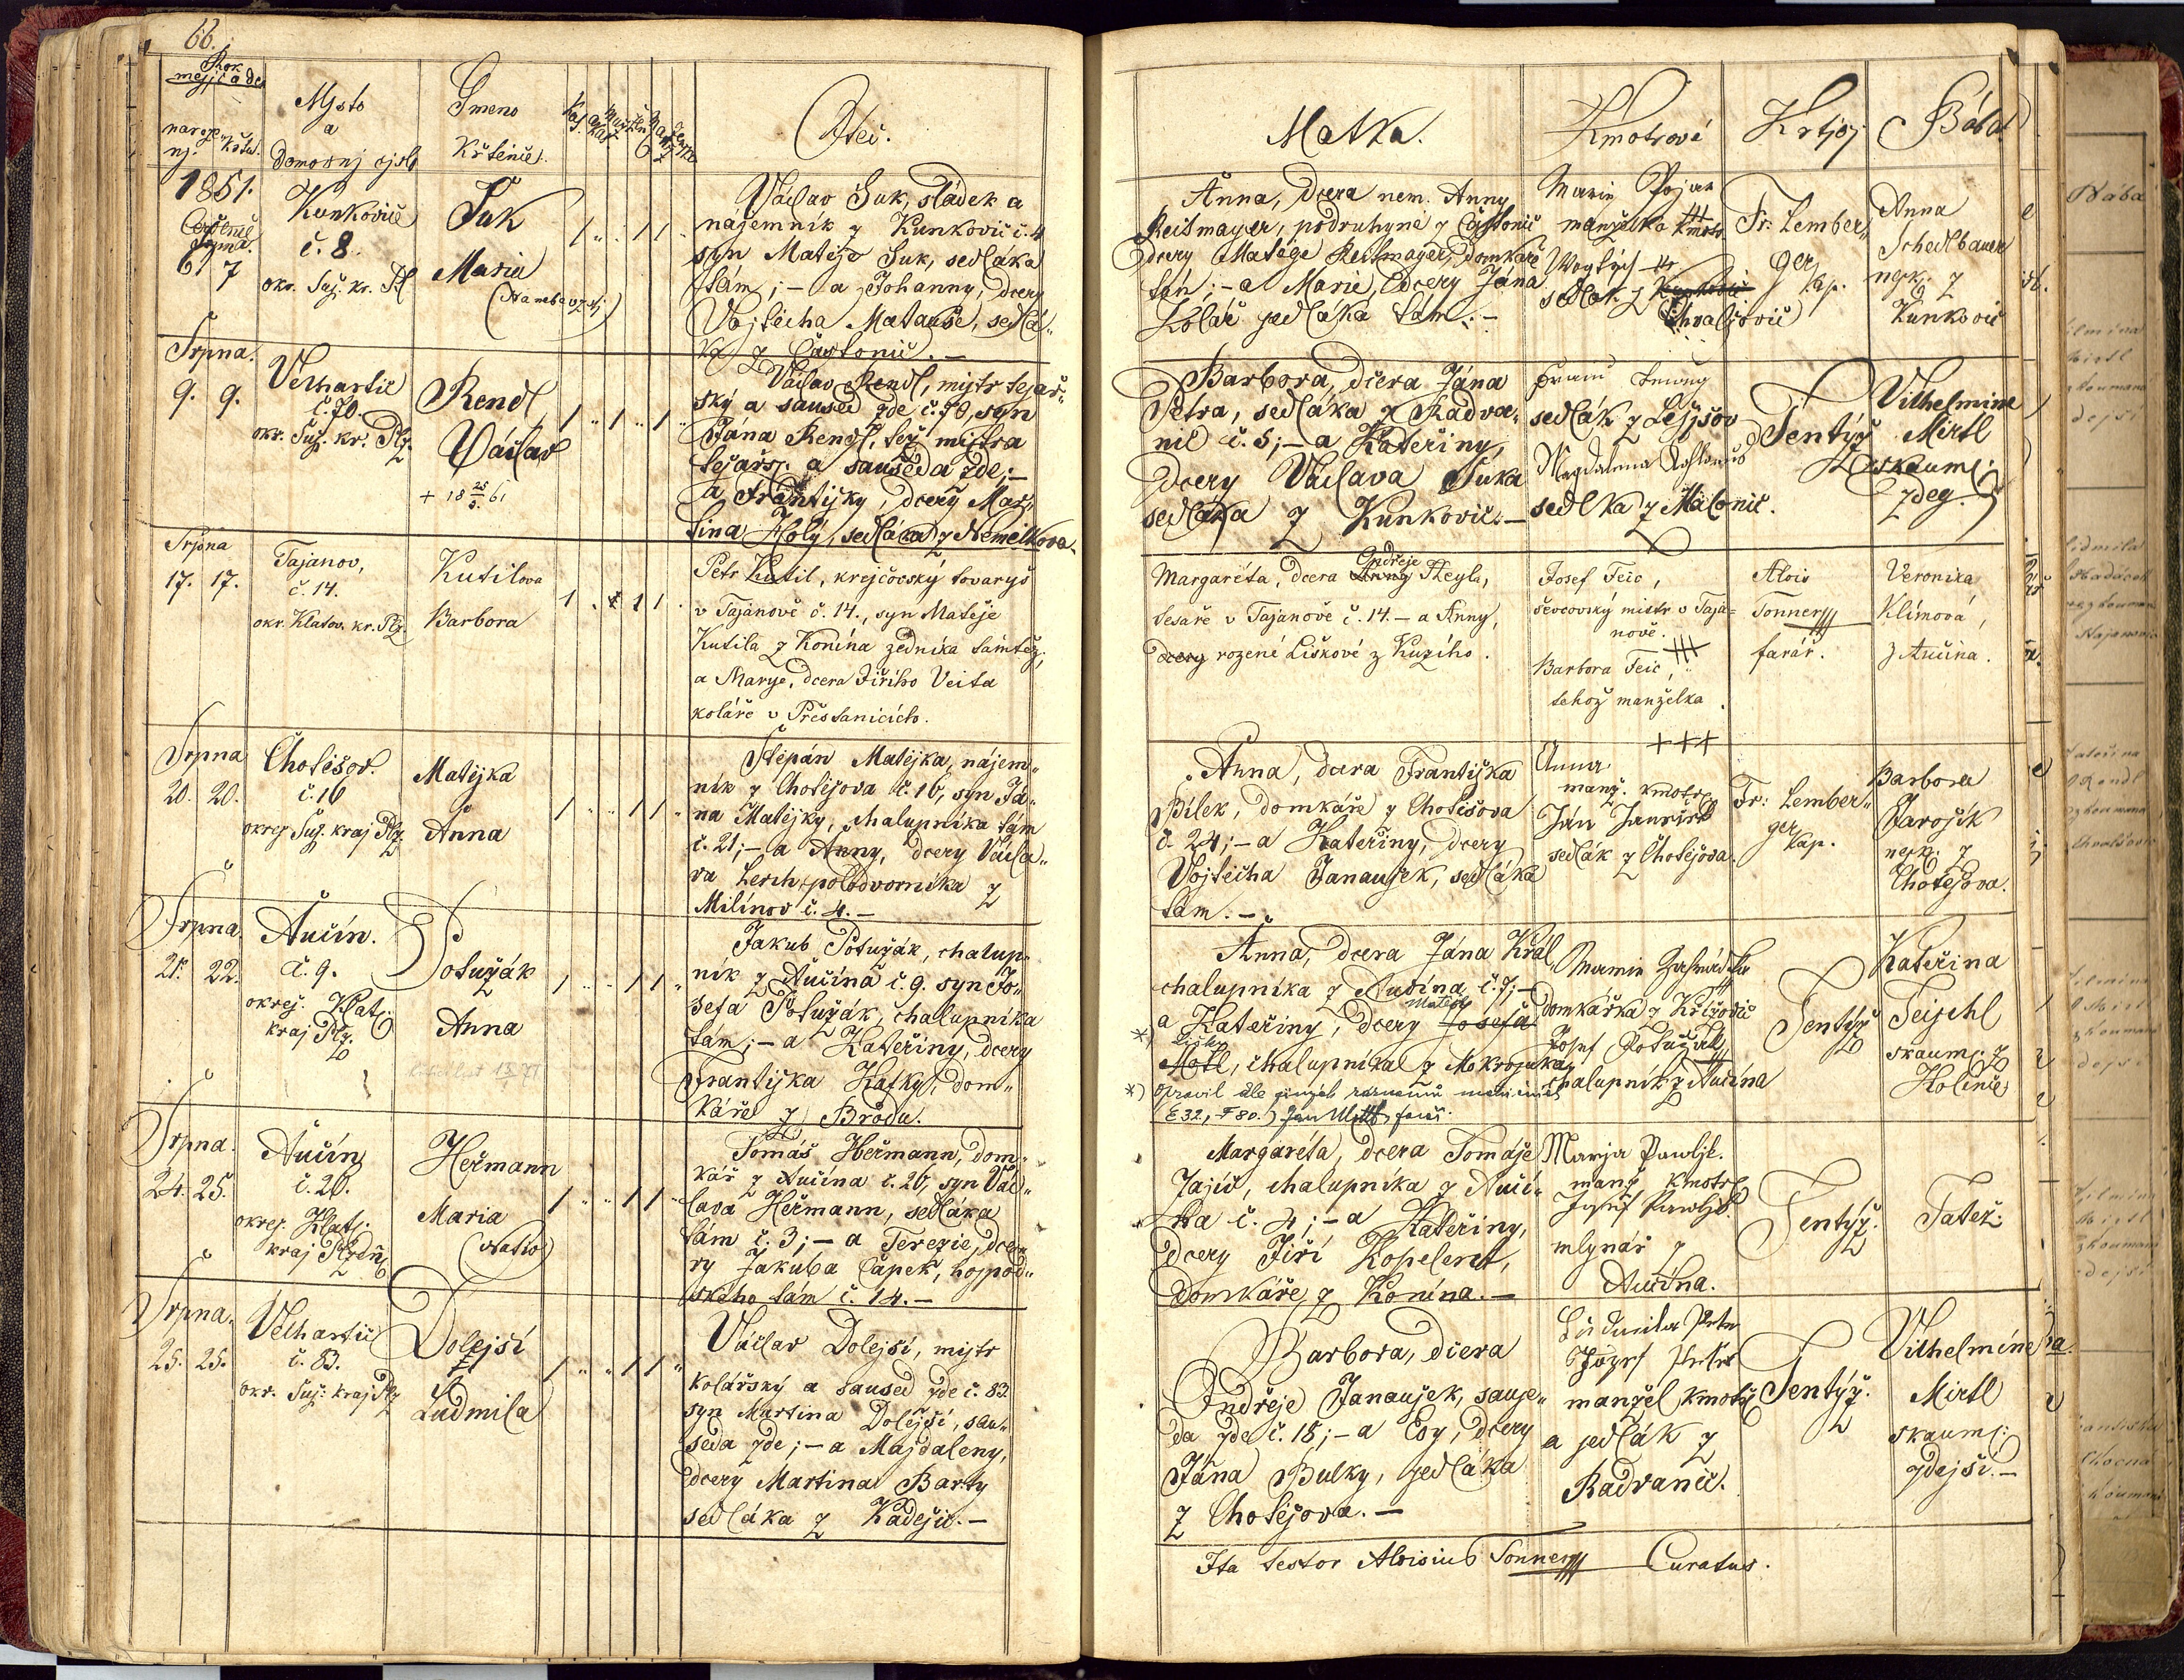 66.
Rok
mesjc a den
naroze
nj.
křtu.
Mjsto
a
domovnj cjslo
Gmeno
křtěnce.
Otec.
1851.
6 7
Kunkovic
č. 8
okr. Suš. kr. Pl
Suk
Maria
Václav Suk, sládek a
nájemník z Kunkovic č. 4
syn Matěje Suk, sedláka
tám; – a Johanny, dcery
Vojtěcha Matauše, sedlá„
ka z Častonic. –
Srpna.
9. 9.
Velhartic
č. 70.
okr. Suš. kr. Plz.
Rendl
Václav
+ 18 25/5 61
Václav Rendl, mistr tesař„
ský a saused zde č. 70, syn
Jána Rendl, též mistra
tesařs. a sauseda zde; –
a Františky, dcery Mar„
tina Holý, sedláka z Nemilkova
Srpna
17. 17.
Tajanov,
č. 14.
okr. Klatov. kr. Plz.
Kutilova
Barbora
Petr Kutil, krejčovský tovaryš
v Tajanově č. 14., syn Matěje
Kutila z Konína zedníka tamtéž,
a Marye, dcera Jiřího Veita
koláře v Přestanicích.
Srpna
20. 20.
Chotěšov.
č. 16
okres Suš. kraj Plz.
Matějka
Anna
Štěpán Matějka, nájem„
ník z Chotěšova č. 16, syn Já„
na Matějky, chalupníka tám
č. 21; – a Anny, dcery Václa„
va Lerch, polodvorníka z
Milínov č. 4. –
Srpna.
21. 22.
Aučín.
č. 9.
okres. Klat.
kraj Plz.
Potužák
Anna
Jakub Potužák, chalup„
ník z Aučína č. 9. syn Jo„
sefa Potužák, chalupníka
tám; – a Kateřiny, dcery
Františka Kafky, dom„
káře z Brodu.
Srpna.
24. 25.
Aučín
č. 26.
okres. Klat.
kraj Plzeň
Heřmann
Maria
Tomáš Heřmann, dom„
kář z Aučína č. 26, syn Vác„
lava Heřmann, sedláka
tám č. 3; – a Terezie, dce„
ry Jakuba Čapek, hospod„
ského tám č. 14. –
Srpna.
25. 25.
Velhartic
č. 83.
okr. Suš. kraj Plz
Dolejší
Ludmila
Václav Dolejší, mistr
kolářský a saused zde č. 83.
syn Martina Dolejší, sau„
seda zde; – a Majdaleny,
dcery Martina Barty
sedláka z Kadešic. –
Matka.
Kmotrové
Křtjcj
Bába
Anna, dcera nem. Anny
Reitmayer, podruhyně z Častonic
dcery Matěge Reitmayer, domkáře
tám; – a Marie, dcery Jána
Kolář sedláka tám. –
Marie
manželka kmotr
sedlák z
Chvalšovic
Fr. Lember„
ger
kap.
Anna
Schedlbauer
nezk. z
Kunkovic
Barbora, dcera Jána
Petra, sedláka z Radva„
nic č. 5; – a Kateřiny,
dcery Václava Suka
sedláka z Kunkovic. –
sedlák z
Magdalena
sedlka z Malonic.
Tentýž
Vilhelmine
Mirtl
zkaum.
zdeg.
Margaréta, dcera Ondřeje Heyla,
tesaře v Tajanově č. 14. – a Anny,
dcery rozené Liškové z Kuzího.
Josef Feic,
ševcovský mistr v Taja=
nově. +++
Barbora Feic,
tehož manželka
+++
Alois
Tonner
farář.
Veronika
Klímová,
z Aučína.
Anna, dcera Františka
Bílek, domkáře z Chotěšova
č. 24; – a Kateřiny, dcery
Vojtěcha Janaušek, sedláka
tám. –
Anna
manž. kmotr
Ján
sedlák z Chotěšova.
Fr. Lember„
ger
kap.
Barbora
Jarošík
nezk. z
Chotěšova.
Anna, dcera Jána Král,
chalupníka z Aučína č. 7; –
a Kateřiny, dcery Josefa Matěje
*)
Motl, chalupníka z Mokrosuka,
*) Opravil dle
(E 32, F 80.) Jan farář.
Marie
domkářka z Křižovic
Josef Potužák
chalupník z Aučína
Tentýž
Kateřina
Teischl
zkaum. z
Kolince
Margaréta, dcera Tomáše
Zajíc, chalupníka z Auči„
na č. 4; – a Kateřiny,
dcery Jiří Kopelent,
domkáře z Konína. –
Marja
manž. kmotr
Josef
mlynář z
Aučína.
Tentýž.
Tatéž.
Barbora, dcera
Ondřeje Janaušek, sause„
da zde č. 18; – a Evy, dcery
Jána Bulky, sedláka
z Chotěšova. –
Ludmila Petr
Jozef Petr
manžel kmotry
a sedlák z
Radvanic.
Tentýž.
Vilhelmíne
Mirtl
zkaum.
zdejší. –
Ita testor Aloisius Tonner Curatus.